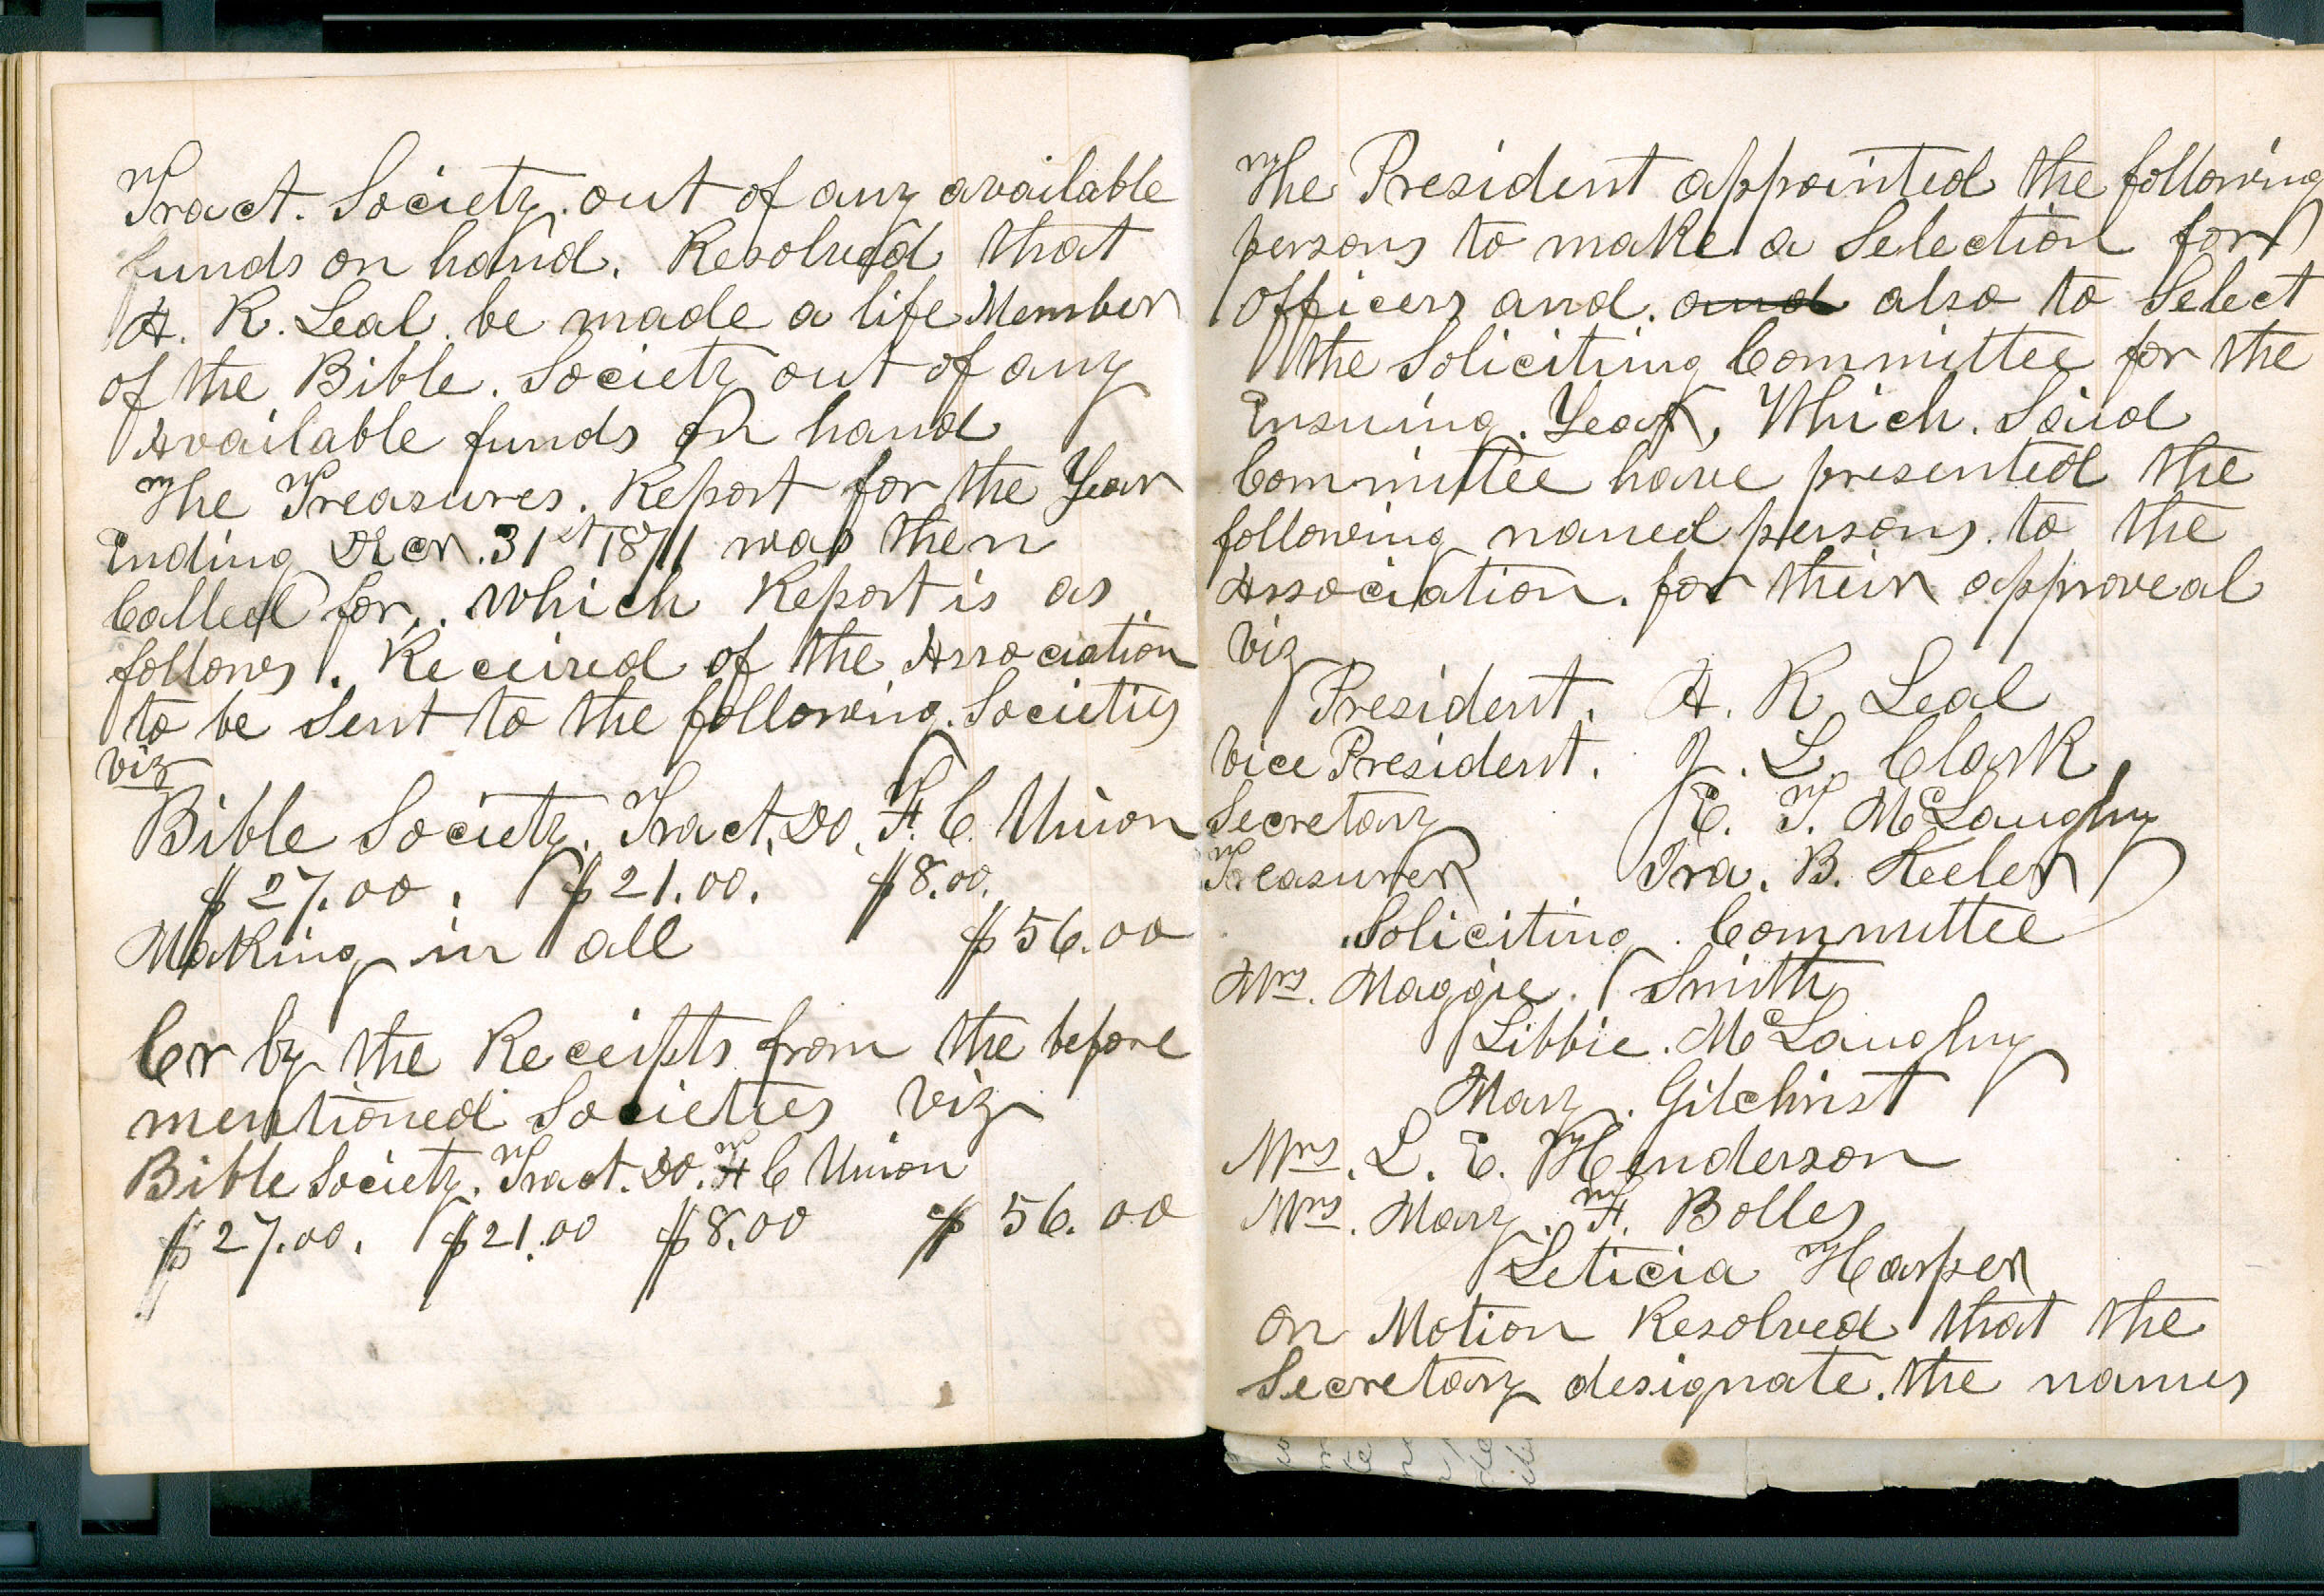 Tract. Society. out of any available
funds on hand. Resolved that
A. R. Leal. be made a life Member
of the Bible. Society out of any
Available funds on hand
The Treasures. Report for the Year
Ending Decr. 31st 1871 was then
Called for,. which Report is as
follows. Received of the Association
to be Sent to the following. Societies
viz
Bible Society. Tract. Do. F. C. Union
$27.00. $21.00. $8.00.
Making in all $56.00
Cr by the Receipts from the before
mentioned Societies Viz
Bible Society. Tract. Do. F C Union
$27.00. $21.00 $8.00 $56.00
The President appointed the following
persons to make a Selection for
Officers and. and also to Select
the Soliciting Committee for the
Ensuing. Year, Which. Said
Committee have presented the
following named persons. to the
Association. for their approveal
Viz
President. A. R. Leal
Vice President. J. L. Clark
Secretary E. T. McLaughry
Treasurer Ira. B. Keeler
Soliciting. Committee
Mrs. Maggie. Smith
Libbie. McLaughry
Mary. Gilchrist
Mrs. L. E. Henderson
Mrs. Mary. F. Bolles
Leticia Harper
On Motion Resolved that the
Secretary designate. the names